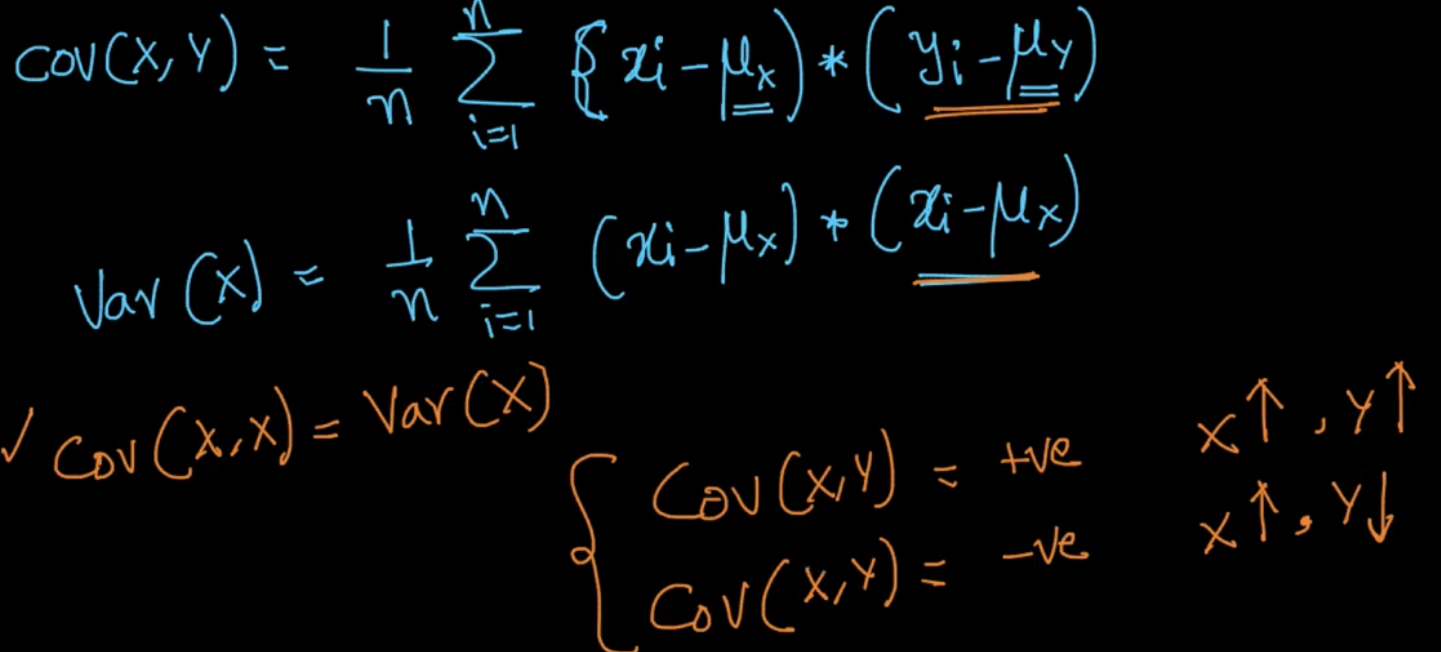 COV(X, Y) = 1/n Σ_{i=1}^{n} {xi - μx) * (yi - μy)
Var (X) = 1/n Σ_{i=1}^{n} (xi - μx) * (xi - μx)
✓ Cov (X,X) = Var (X)
{ Cov (X,Y) = +ve X↑, Y↑
Cov (X,Y) = -ve X↑, Y↓